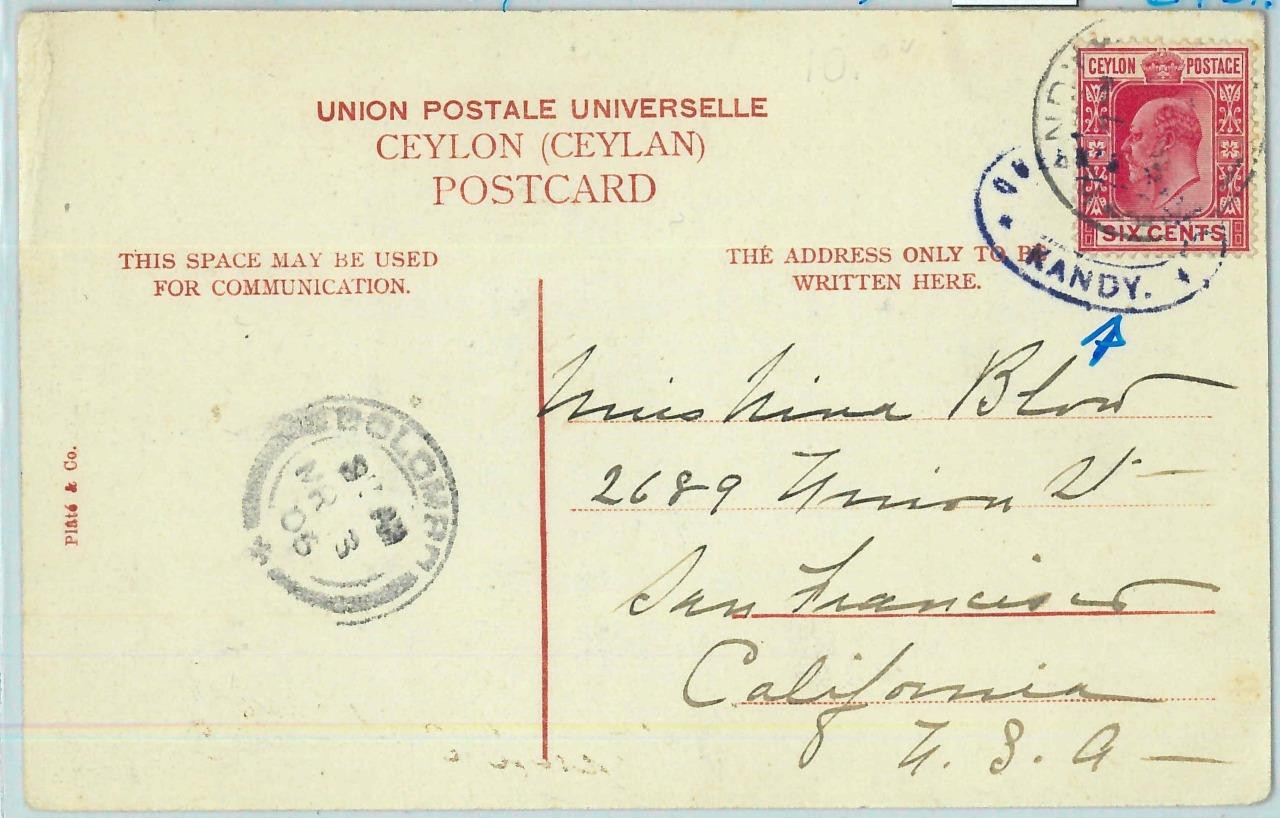 CEYLON POSTAGE
SIX CENTS
UNION POSTALE UNIVERSELLE
CEYLON (CEYLAN)
POSTCARD
THIS SPACE MAY BE USED
FOR COMMUNICATION.
THE ADDRESS ONLY TO BE
WRITTEN HERE.
KANDY.
Miss Nina Blow
2689 Union St
San Francisco
California
U. S. A
COLOMBO
MR 3
05
Plâté & Co.